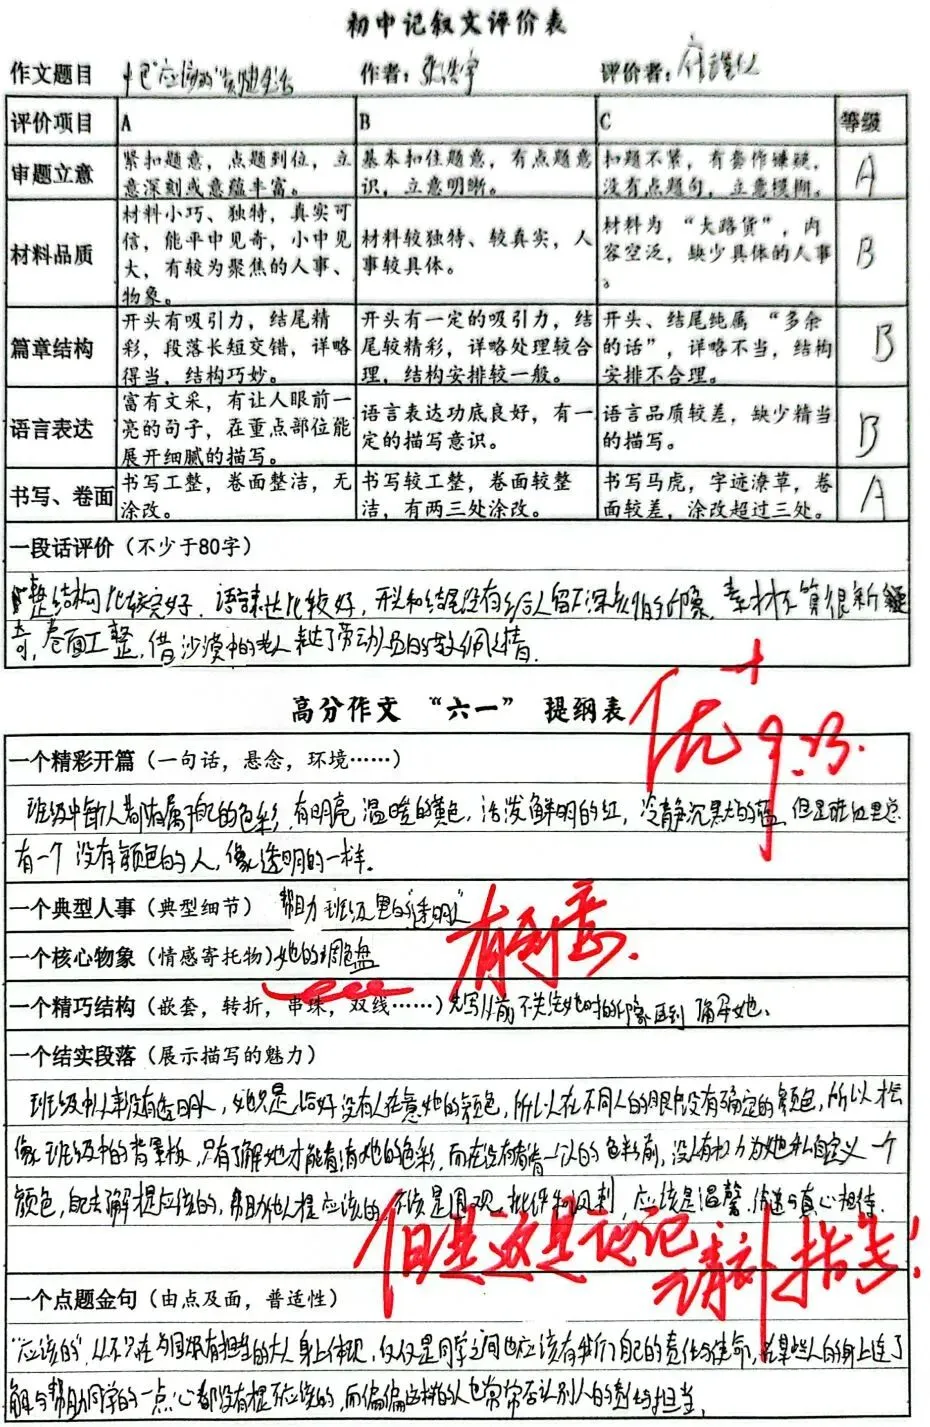 初中记叙文评价表
作文题目 作者： 评价者：
评价项目 A B C 等级
审题立意 紧扣题意，点题到位，立意深刻或意蕴丰富。 基本扣住题意，有点题意识，立意明晰。 扣题不紧，有套作嫌疑，没有点题句，立意模糊。 A
材料品质 材料小巧、独特，真实可信，能平中见奇，小中见大，有较为聚焦的人事、物象。 材料较独特、较真实，人事较具体。 材料为“大路货”，内容空泛，缺少具体的人事。 B
篇章结构 开头有吸引力，结尾精彩，段落长短交错，详略得当，结构巧妙。 开头有一定的吸引力，结尾较精彩，详略处理较合理，结构安排较一般。 开头、结尾纯属“多余的话”，详略不当，结构安排不合理。 B
语言表达 富有文采，有让人眼前一亮的句子，在重点部位能展开细腻的描写。 语言表达功底良好，有一定的描写意识。 语言品质较差，缺少精当的描写。 B
书写、卷面 书写工整，卷面整洁，无涂改。 书写较工整，卷面较整洁，有两三处涂改。 书写马虎，字迹潦草，卷面较差，涂改超过三处。 A
一段话评价（不少于80字）
整结构比较完好．语言表达比较好，开头和结尾没有给人留下深刻的印象，素材不算很新
奇，卷面工整，借沙漠中的老人表达了劳动人民的敬佩之情．
高分作文“六一”提纲表
优+ 9.23.
一个精彩开篇（一句话，悬念，环境……）
班级中每人都有属于自己的色彩，有明亮温暖的黄色，活泼鲜明的红，冷静沉默的蓝，但是班级里总
有一个没有颜色的人，像透明的一样．
一个典型人事（典型细节） 帮助班级里的“透明人”
一个核心物象（情感寄托物）她的调色盘
有创意．
一个精巧结构（嵌套，转折，串珠，双线……）先写从前不关注她时的印象再到了解她．
一个结实段落（展示描写的魅力）
班级中从来没有透明人，她只是恰好没有人在意她的颜色，所以在不同人的眼中没有确定的颜色，所以才
像班级中的背景板，只有了解她才能看清她的色彩，而在没有看清一个人的色彩前，没有权力为她私自定义一个
颜色，自己去了解是应该的，帮助他人是应该的，不该是围观，批评和讽刺，应该是温馨，传递与真心相待．
但是这是
一个点题金句（由点及面，普适性）
“应该的”，从不只在为国家有担当的大人身上体现，仅仅是同学之间也应该有我们自己的责任与使命，在某些人的身上连了
解与帮助同学的一点心都没有是不应该的，而偏偏这样的人也常常否认别人的责任与担当．